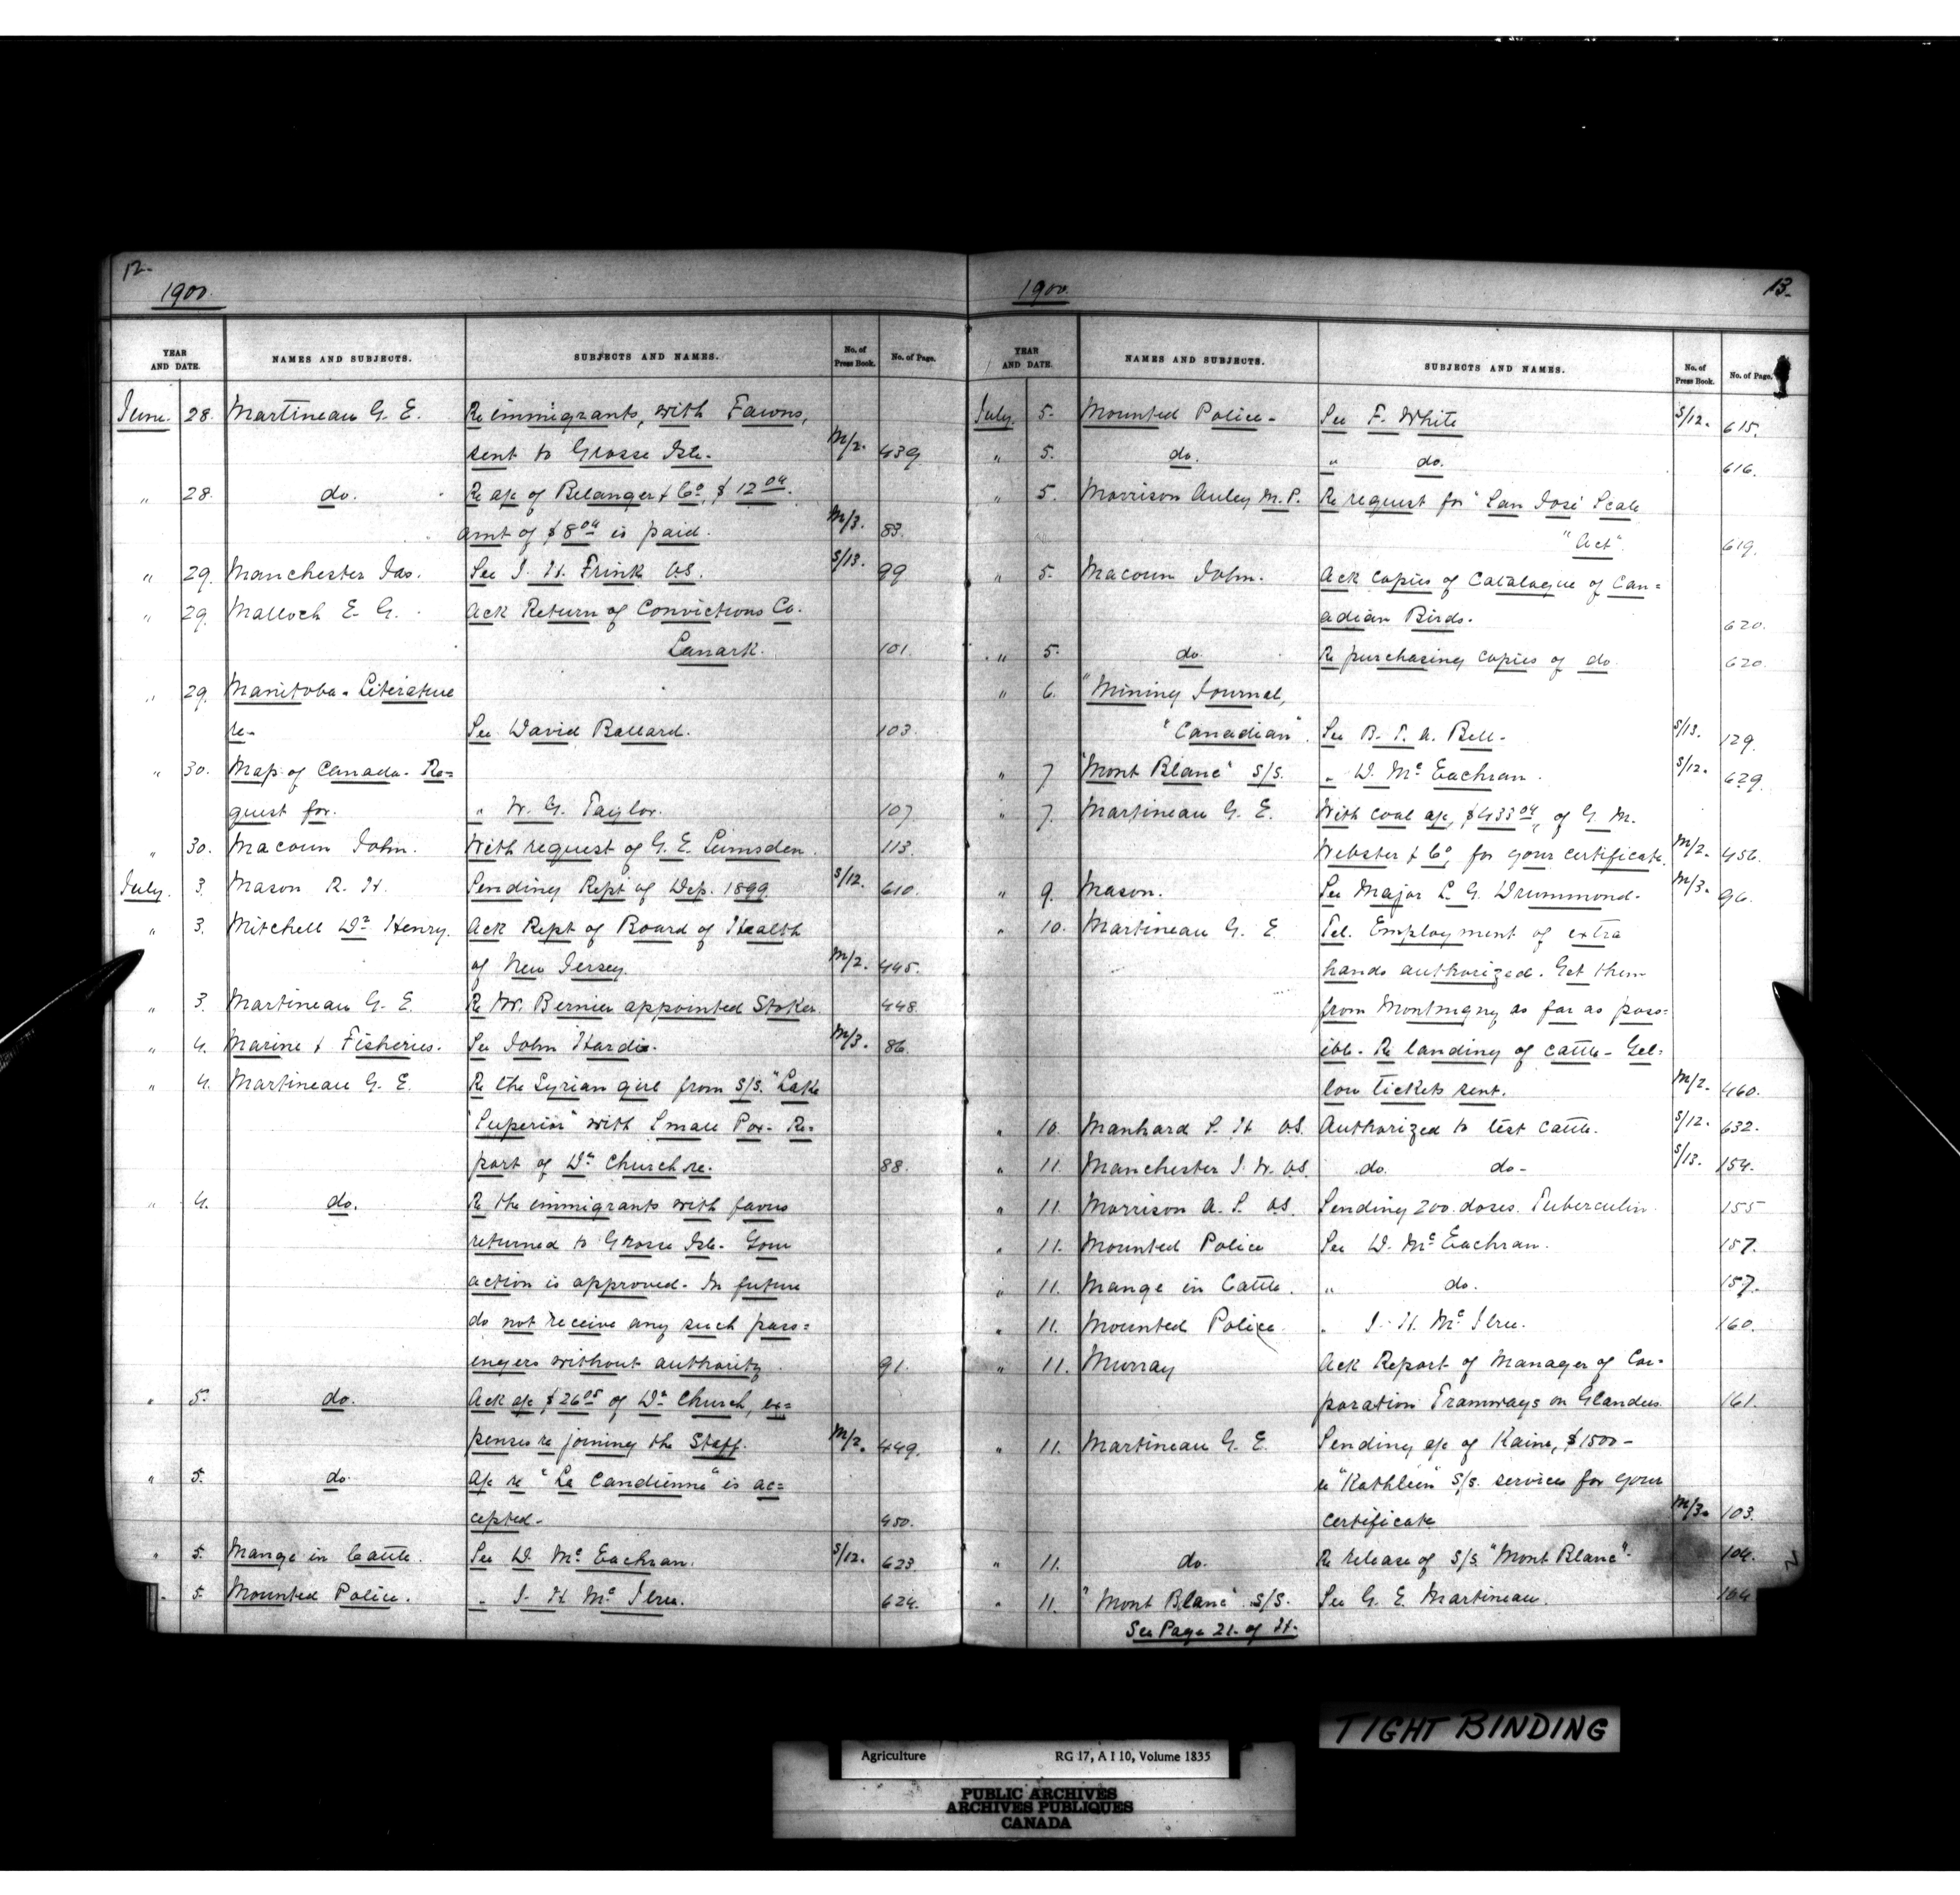 12-
1900.
YEAR AND DATE. NAMES AND SUBJECTS. SUBJECTS AND NAMES. No. of Press Book. No. of Page.
June. 28. Martineau G. E. Re immigrants, with Favus,
sent to Grosse Isle. M/2. 439
" 28. do. Re a/c of Belanger & Co, $12.00.
amt of $8.00 is paid. M/3. 83.
" 29. Manchester Jas. See J. H. Frink V.S. S/13. 99
" 29. Malloch E. G. Ack Return of Convictions Co.
Lanark. 101.
" 29. Manitoba. Literature
re- See David Ballard. 103.
" 30. Map of Canada. Re=
quest for. " W. G. Taylor. 107.
" 30. Macoun John. With request of G. E. Lumsden. 113.
July. 3. Mason R. H. Sending Rept of Dep. 1899. S/12. 610.
" 3. Mitchell Dr Henry. Ack Rept of Board of Health
of New Jersey. M/2. 445.
" 3. Martineau G. E. Re W. Bernier appointed Stoker 448.
" 4. Marine & Fisheries. See John Hardie. M/3. 86.
" 4. Martineau G. E. Re the Syrian girl from S/S. "Lake
Superior" with Small Pox. Re=
port of Dr Church re. 88.
" 4. do. Re the immigrants with favus
returned to Grosse Isle. Your
action is approved. In future
do not receive any such pass=
engers without authority. 91.
" 5. do. Ack a/c $26.05 of Dr Church, ex=
penses re joining the Staff. M/2. 449.
" 5. do. A/c re "La Candienne" is ac=
cepted. 450.
" 5. Mange in Cattle. See D. McEachran. S/12. 623.
" 5. Mounted Police. " J. H. McIlree. 624.
13.
1900.
YEAR AND DATE. NAMES AND SUBJECTS. SUBJECTS AND NAMES. No. of Press Book. No. of Page.
July. 5. Mounted Police. See F. White S/12. 615.
" 5. do. " do. 616.
" 5. Morrison Auley M.P. Re request for "San José Scale
"Act". 619.
" 5. Macoun John. Ack copies of Catalogue of Can=
adian Birds. 620.
" 5. do Re purchasing copies of do. 620.
" 6. "Mining Journal,
"Canadian". See B. T. A. Bell. S/13. 129.
" 7. "Mont Blanc" S/S. " D. McEachran. S/12. 629.
" 7. Martineau G. E. With coal a/c, $433.04, of G. M.
Webster & Co, for your certificate. M/2. 456.
" 9. Mason. See Major L. G. Drummond. M/3. 96.
" 10. Martineau G. E. Tel. Employment of extra
hands authorized. Get them
from Montmgny as far as poss=
ible. Re landing of cattle. Yel=
low tickets sent. M/2. 460.
" 10. Manhard S. H. V.S. Authorized to test cattle. S/12. 632.
" 11. Manchester J. W. V.S. do. do- S/13. 154.
" 11. Morrison A. S. V.S. Sending 200 doses. Tuberculin. 155
" 11. Mounted Police See D. McEachran. 157.
" 11. Mange in Cattle. " do. 157.
" 11. Mounted Police. " J. H. McIlree. 160.
" 11. Murray Ack Report of Manager of Cor=
poration Tramways on Glanders. 161.
" 11. Martineau G. E. Sending a/c of Kaine, $1500-
re "Kathleen" S/S. services for your
certificate M/3. 103.
" 11. do. Re release of S/S. "Mont Blanc". 104.
" 11. "Mont Blanc" S/S. See G. E. Martineau. 104
See Page 21. of H.
TIGHT BINDING
Agriculture RG 17, A I 10, Volume 1835
PUBLIC ARCHIVES
ARCHIVES PUBLIQUES
CANADA